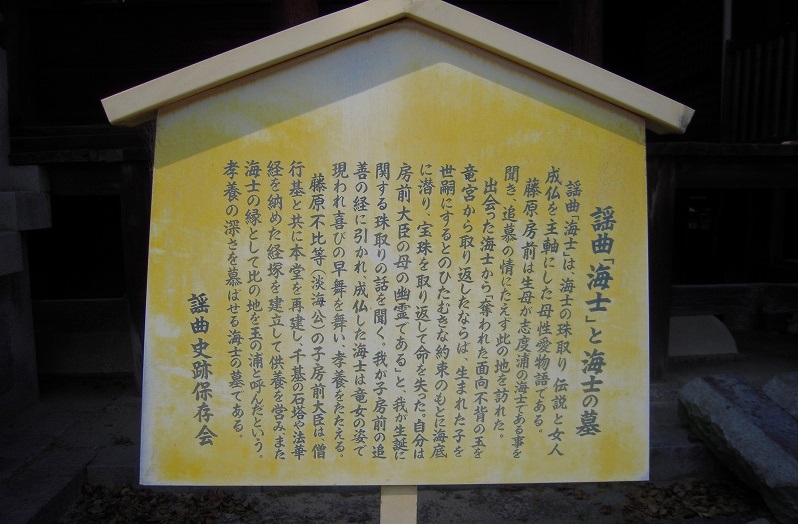 謡曲「海士」と海士の墓
謡曲「海士」は、海士の珠取り伝説と女人
成仏を主軸にした母性愛物語である。
藤原房前は生母が志度浦の海士である事を
聞き、追慕の情にたえず此の地を訪れた。
出会った海士から「奪われた面向不背の玉を
竜宮から取り返したならば、生まれた子を
世嗣にするとのひたむきな約束のもとに海底
に潜り、宝珠を取り返して命を失った。自分は
房前大臣の母の幽霊である」と、我が生誕に
関する珠取りの話を聞く。我が子房前の追
善の経に引かれ、成仏した海士は竜女の姿で
現われ喜びの早舞を舞い、孝養をたたえる。
藤原不比等(淡海公)の子房前大臣は、僧
行基と共に本堂を再建し、千基の石塔や法華
経を納めた経塚を建立して供養を営み、また
海士の縁として比の地を玉の浦と呼んだという。
孝養の深さを慕ばせる海士の墓である。
謡曲史跡保存会